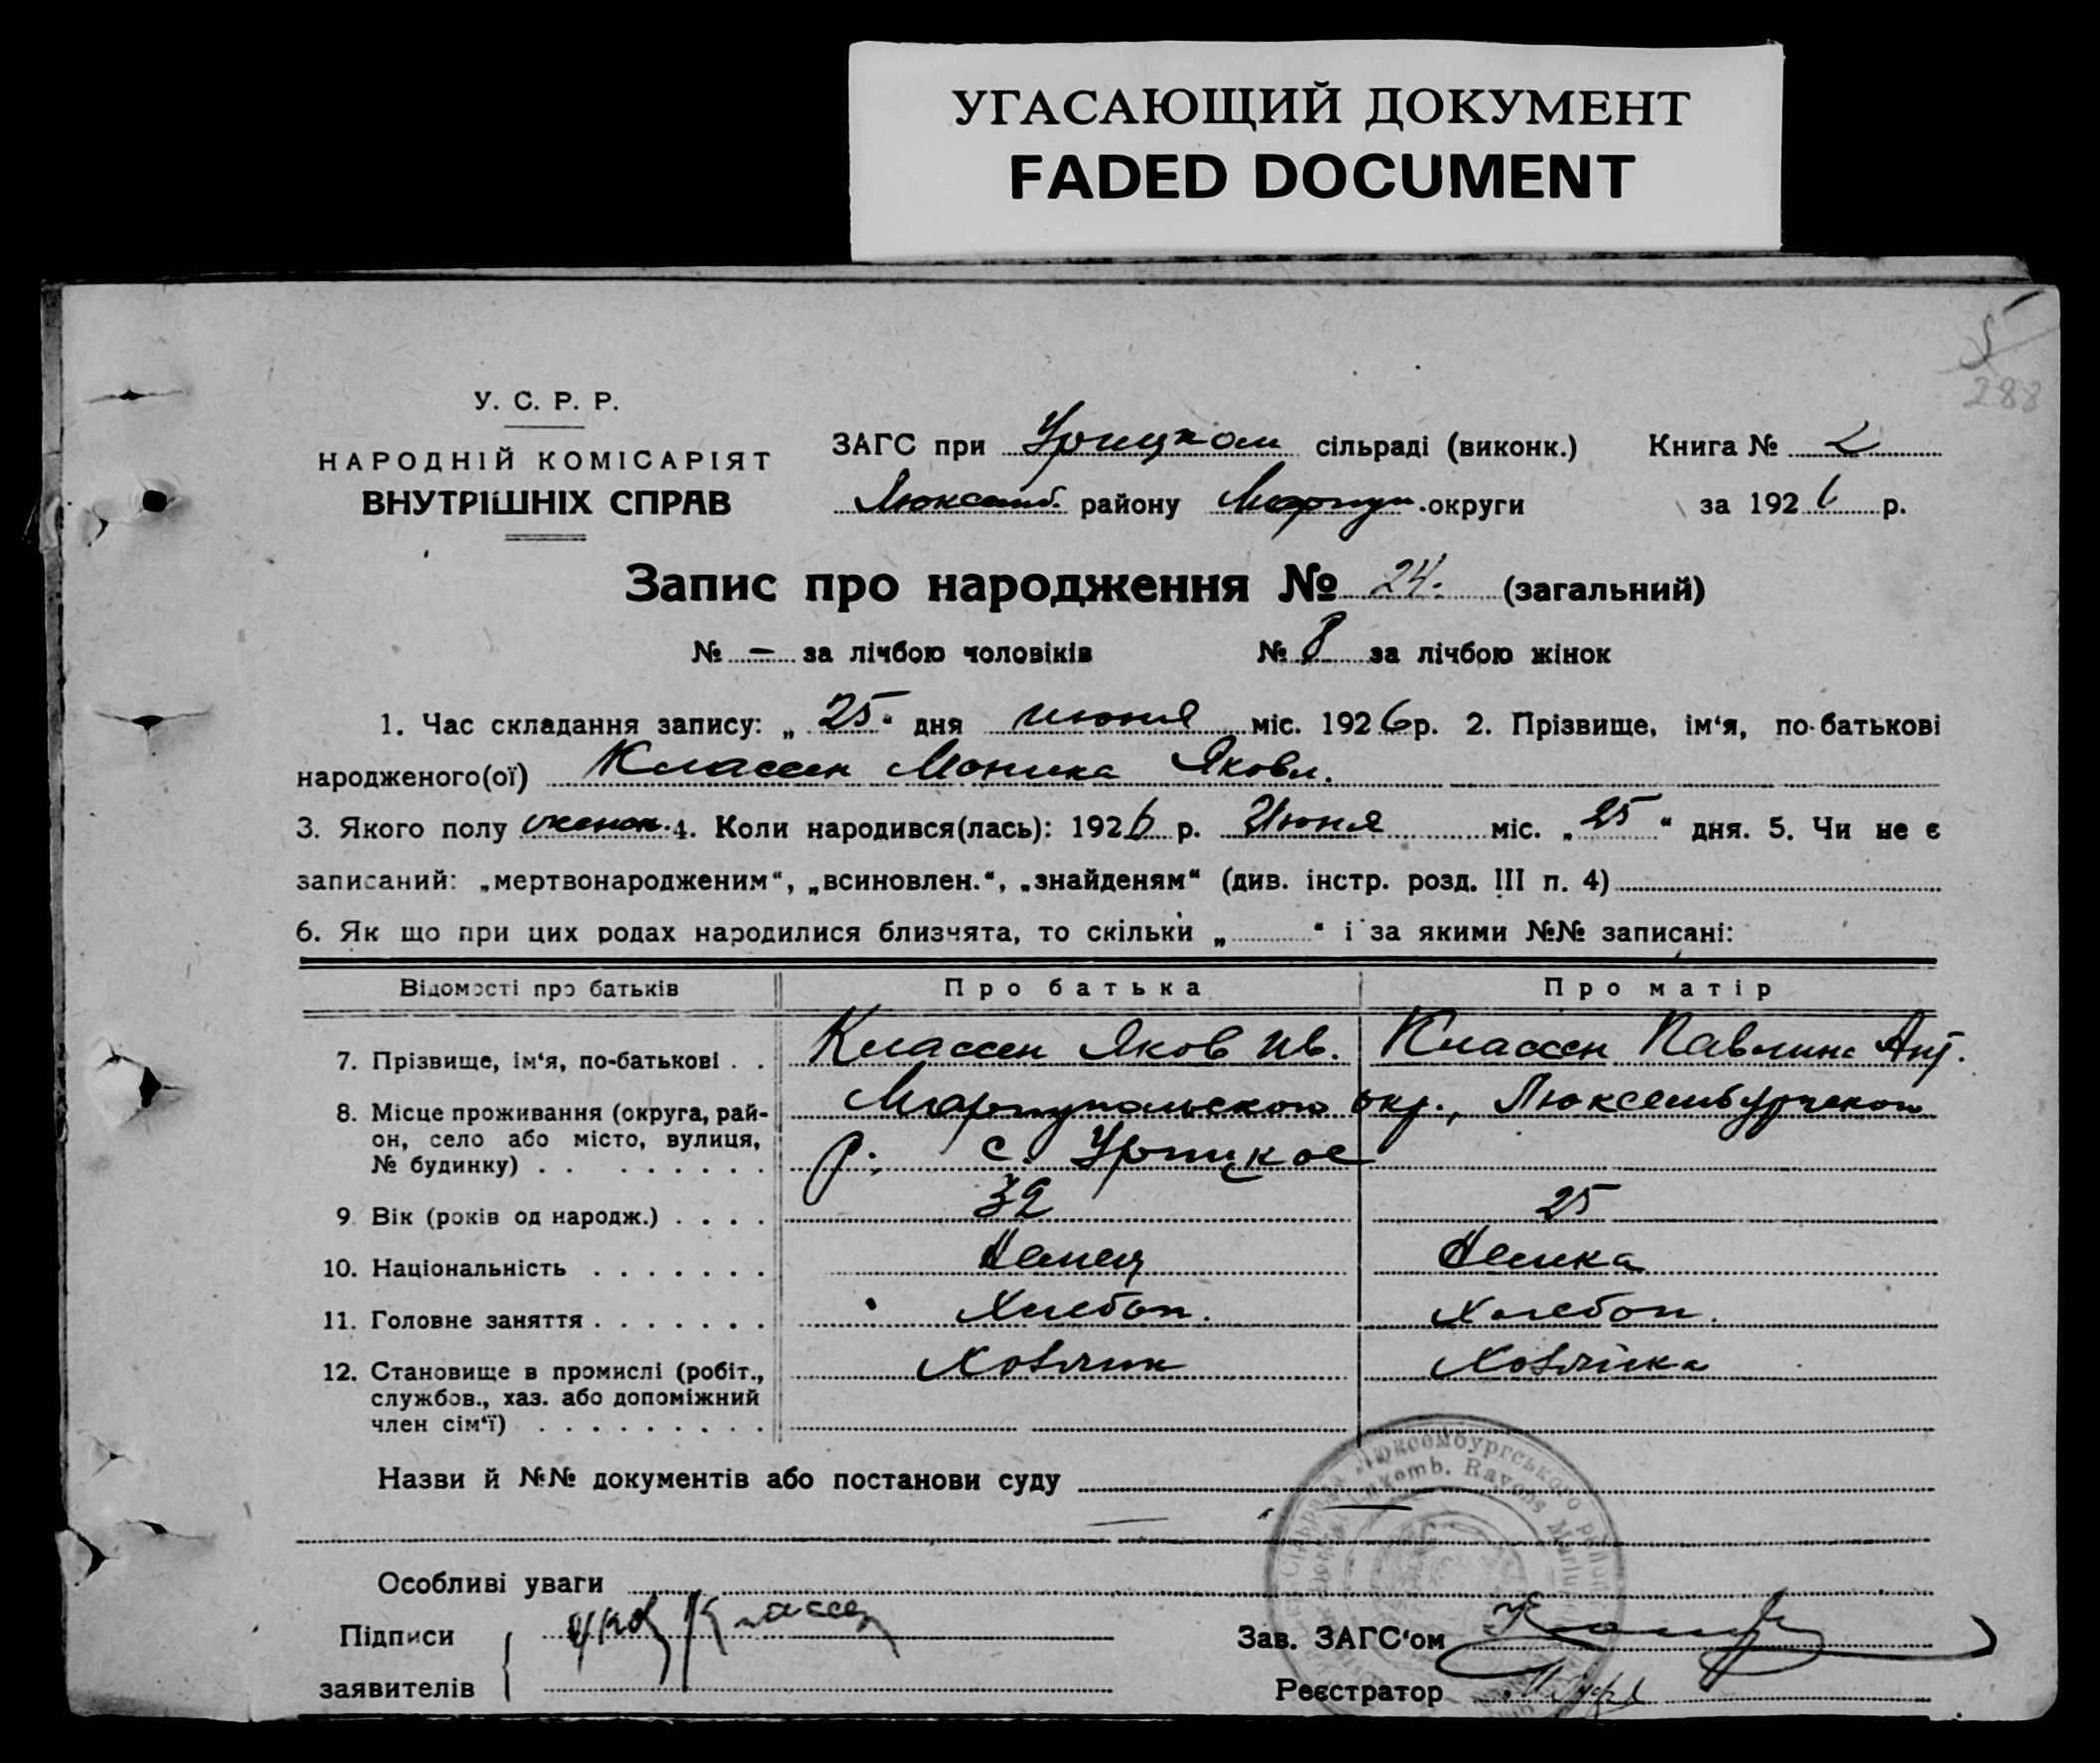 УГАСАЮЩИЙ ДОКУМЕНТ
FADED DOCUMENT
5
288
У. С. Р. Р.
НАРОДНІЙ КОМІСАРІЯТ
ВНУТРІШНІХ СПРАВ
ЗАГС при Урицком сільраді (виконк.) Книга № 2
Люксемб. району Мариуп. округи за 1926 р.
Запис про народження № 24. (загальний)
№ — за лічбою чоловіків № 8 за лічбою жінок
1. Час складання запису: „ 25 “ дня июня міс. 1926 р. 2. Прізвище, ім‘я, по-батькові
народженого(ої) Классен Моника Яковл.
3. Якого полу женск. 4. Коли народився(лась): 1926 р. Июня міс. „ 25 “ дня. 5. Чи не є
записаний: „мертвонародженим“, „всиновлен.“, „знайденям“ (див. інстр. розд. III п. 4)
6. Як що при цих родах народилися близчята, то скільки „ “ і за якими №№ записані:
Відомості про батьків Про батька Про матір
7. Прізвище, ім‘я, по-батькові . . Классен Яков Ив. Классен Павлина Ант.
8. Місце проживання (округа, рай- Мариупольского окр., Люксембургского
он, село або місто, вулиця,
№ будинку) . . . . . . . . р. с. Урицкое
9. Вік (років од народж.) . . . . 32 25
10. Національність . . . . . . . Немец Немка
11. Головне заняття . . . . . . . Хлебоп. Хлебоп.
12. Становище в промислі (робіт., Хозяин Хозяйка
службов., хаз. або допоміжний
член сім‘ї) . . . . . . . . .
Назви й №№ документів або постанови суду
Люксембургського
Rayons
Особливі уваги
Підписи Яков Классен Зав. ЗАГС‘ом
заявителів Реєстратор